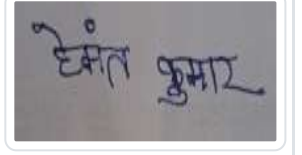 हेमंत कुमार